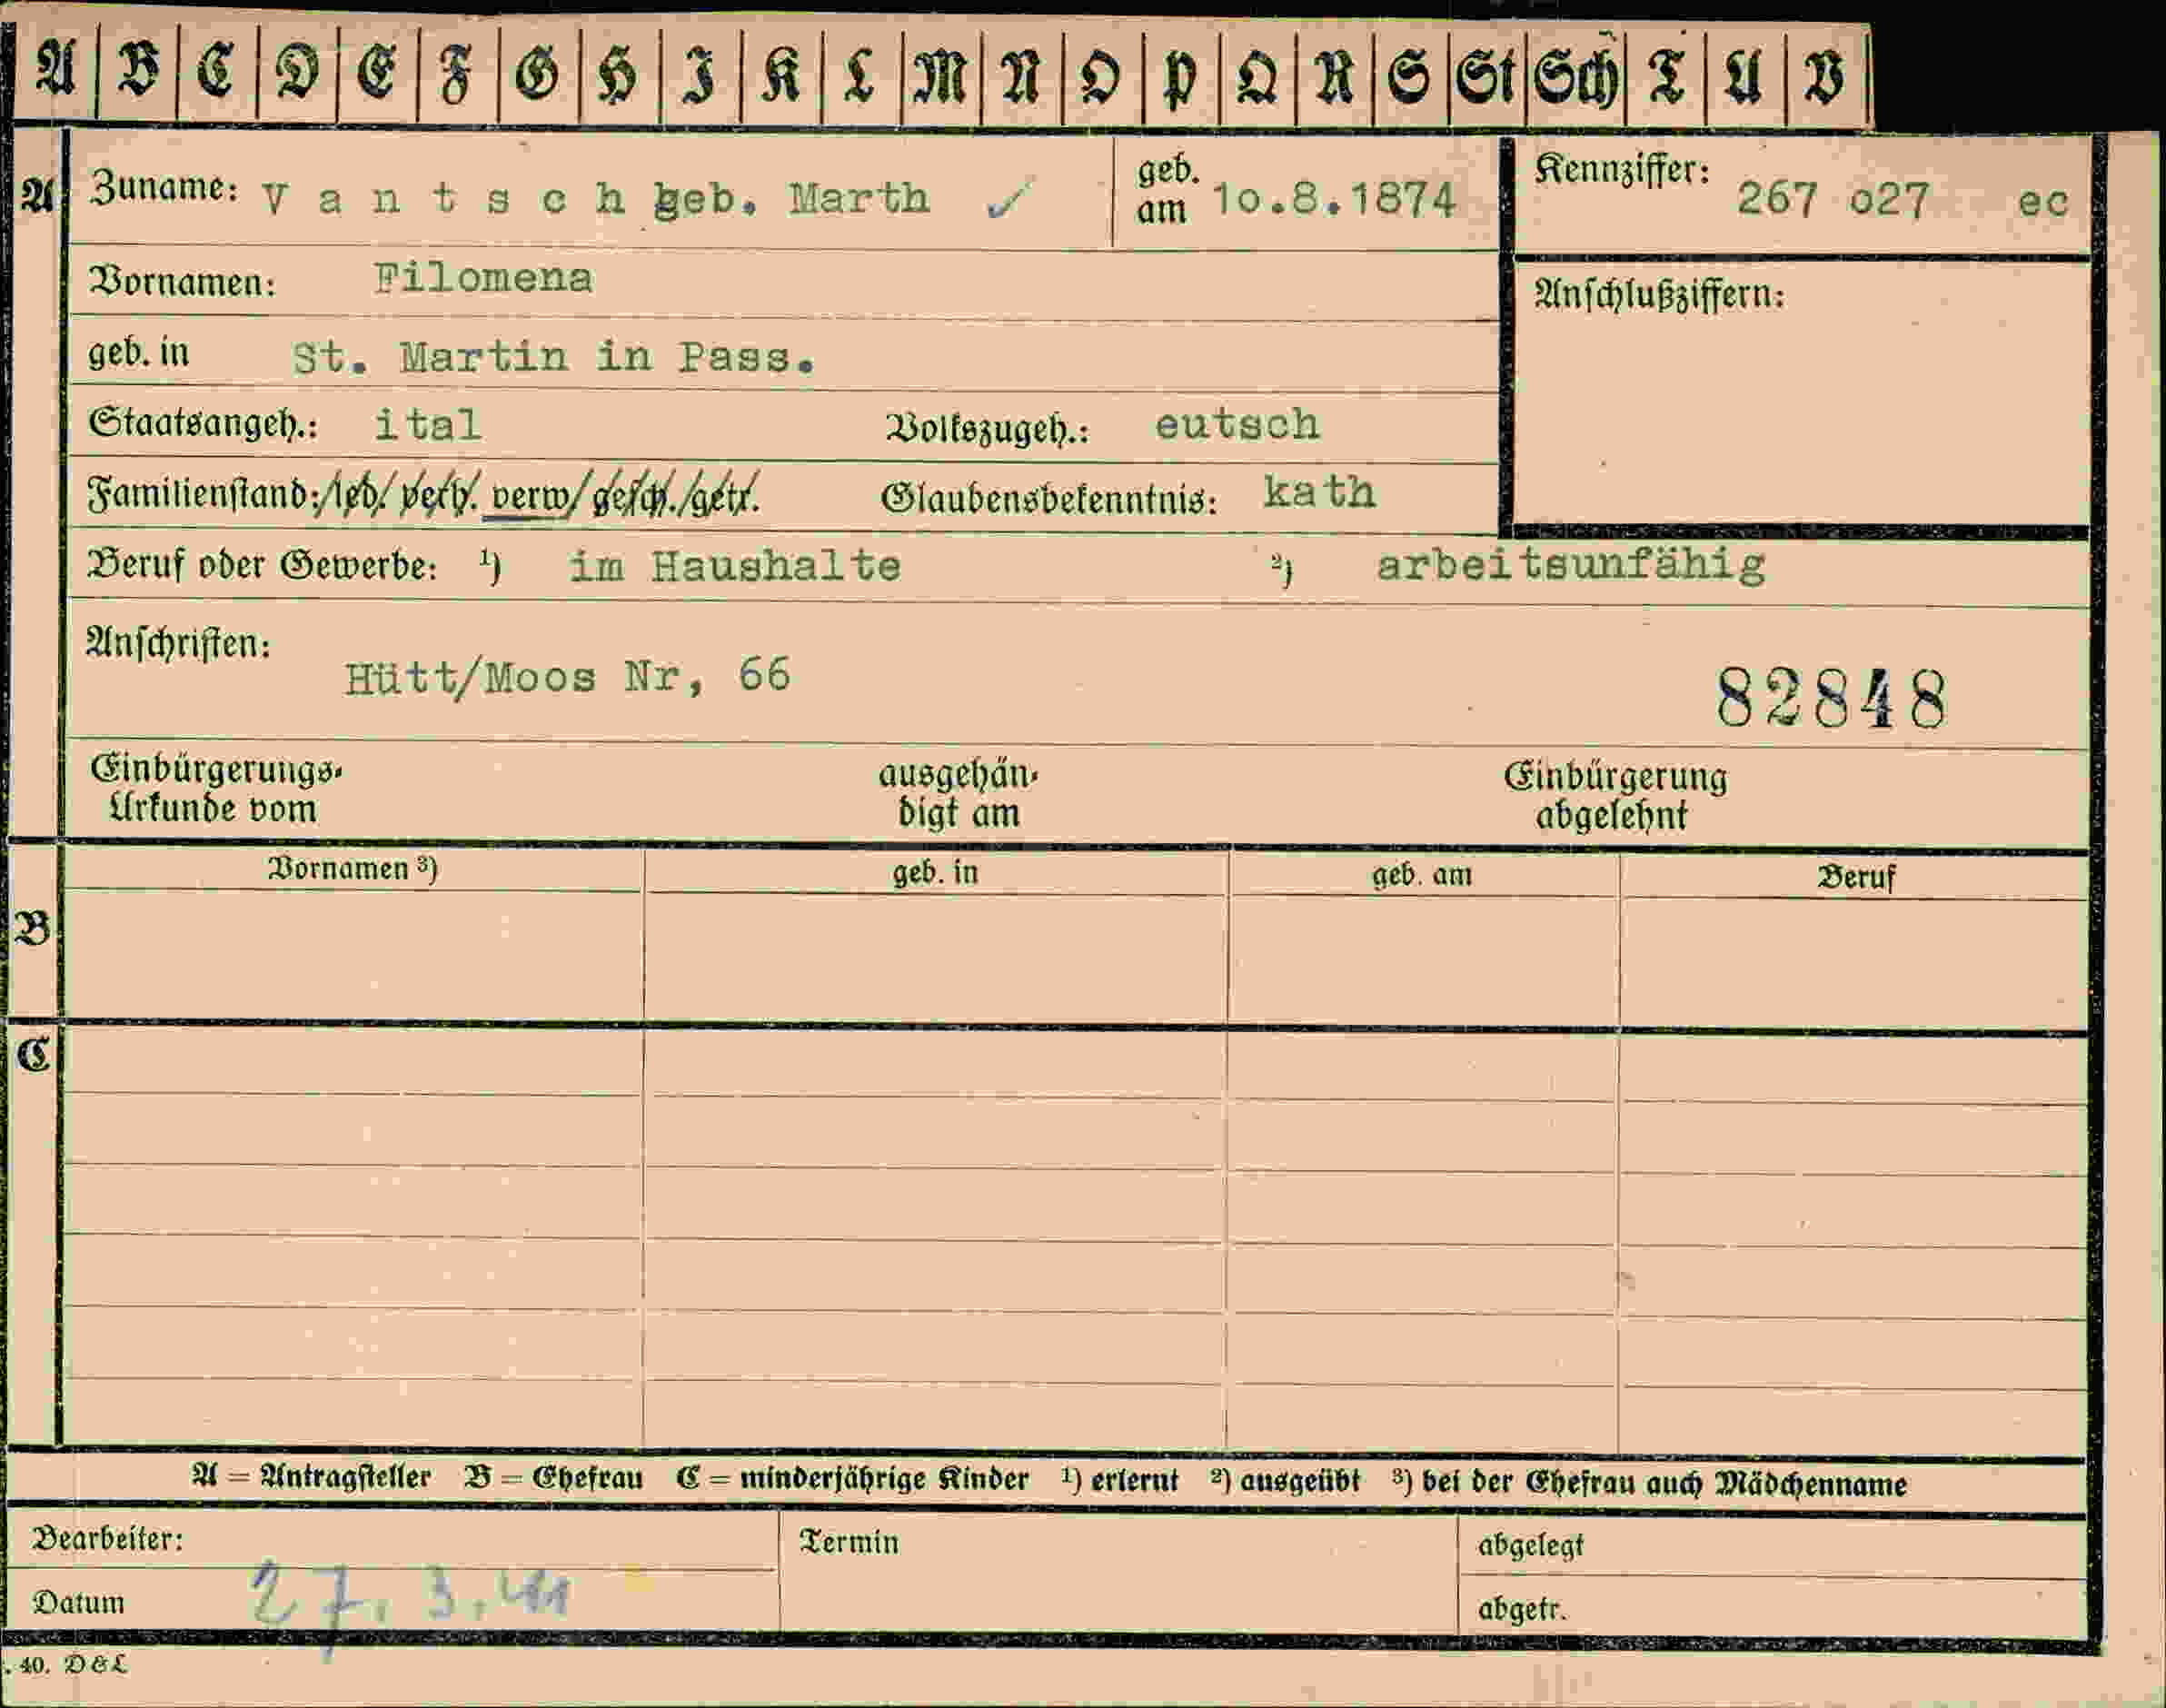 A B C D E F G H I K L M N O P Q R S St Sch T U V
A Zuname: V a n t s c h geb. Marth ✓ geb. am 1o.8.1874 Kennziffer: 267 o27 ec
Vornamen: Filomena
Anschlußziffern:
geb. in St. Martin in Pass.
Staatsangeh.: ital Volkszugeh.: eutsch
Familienstand: led. verh. verw. gesch. getr. Glaubensbekenntnis: kath
Beruf oder Gewerbe: ¹) im Haushalte ²) arbeitsunfähig
Anschriften:
Hütt/Moos Nr, 66 82848
Einbürgerungs- ausgehän- Einbürgerung
Urkunde vom digt am abgelehnt
Vornamen ³) geb. in geb. am Beruf
B
C
A = Antragsteller B = Ehefrau C = minderjährige Kinder ¹) erlernt ²) ausgeübt ³) bei der Ehefrau auch Mädchenname
Bearbeiter: Termin abgelegt
Datum 27. 3. 41 abgetr.
. 40. D & L